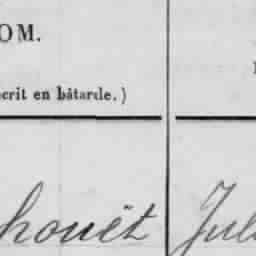 OM.
crit en bâtarde.)
houët Jul